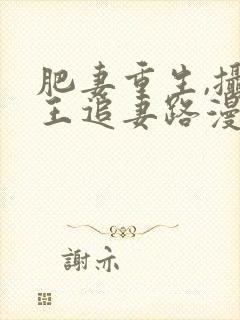 肥妻重生,攝
王追妻路漫
謝亦